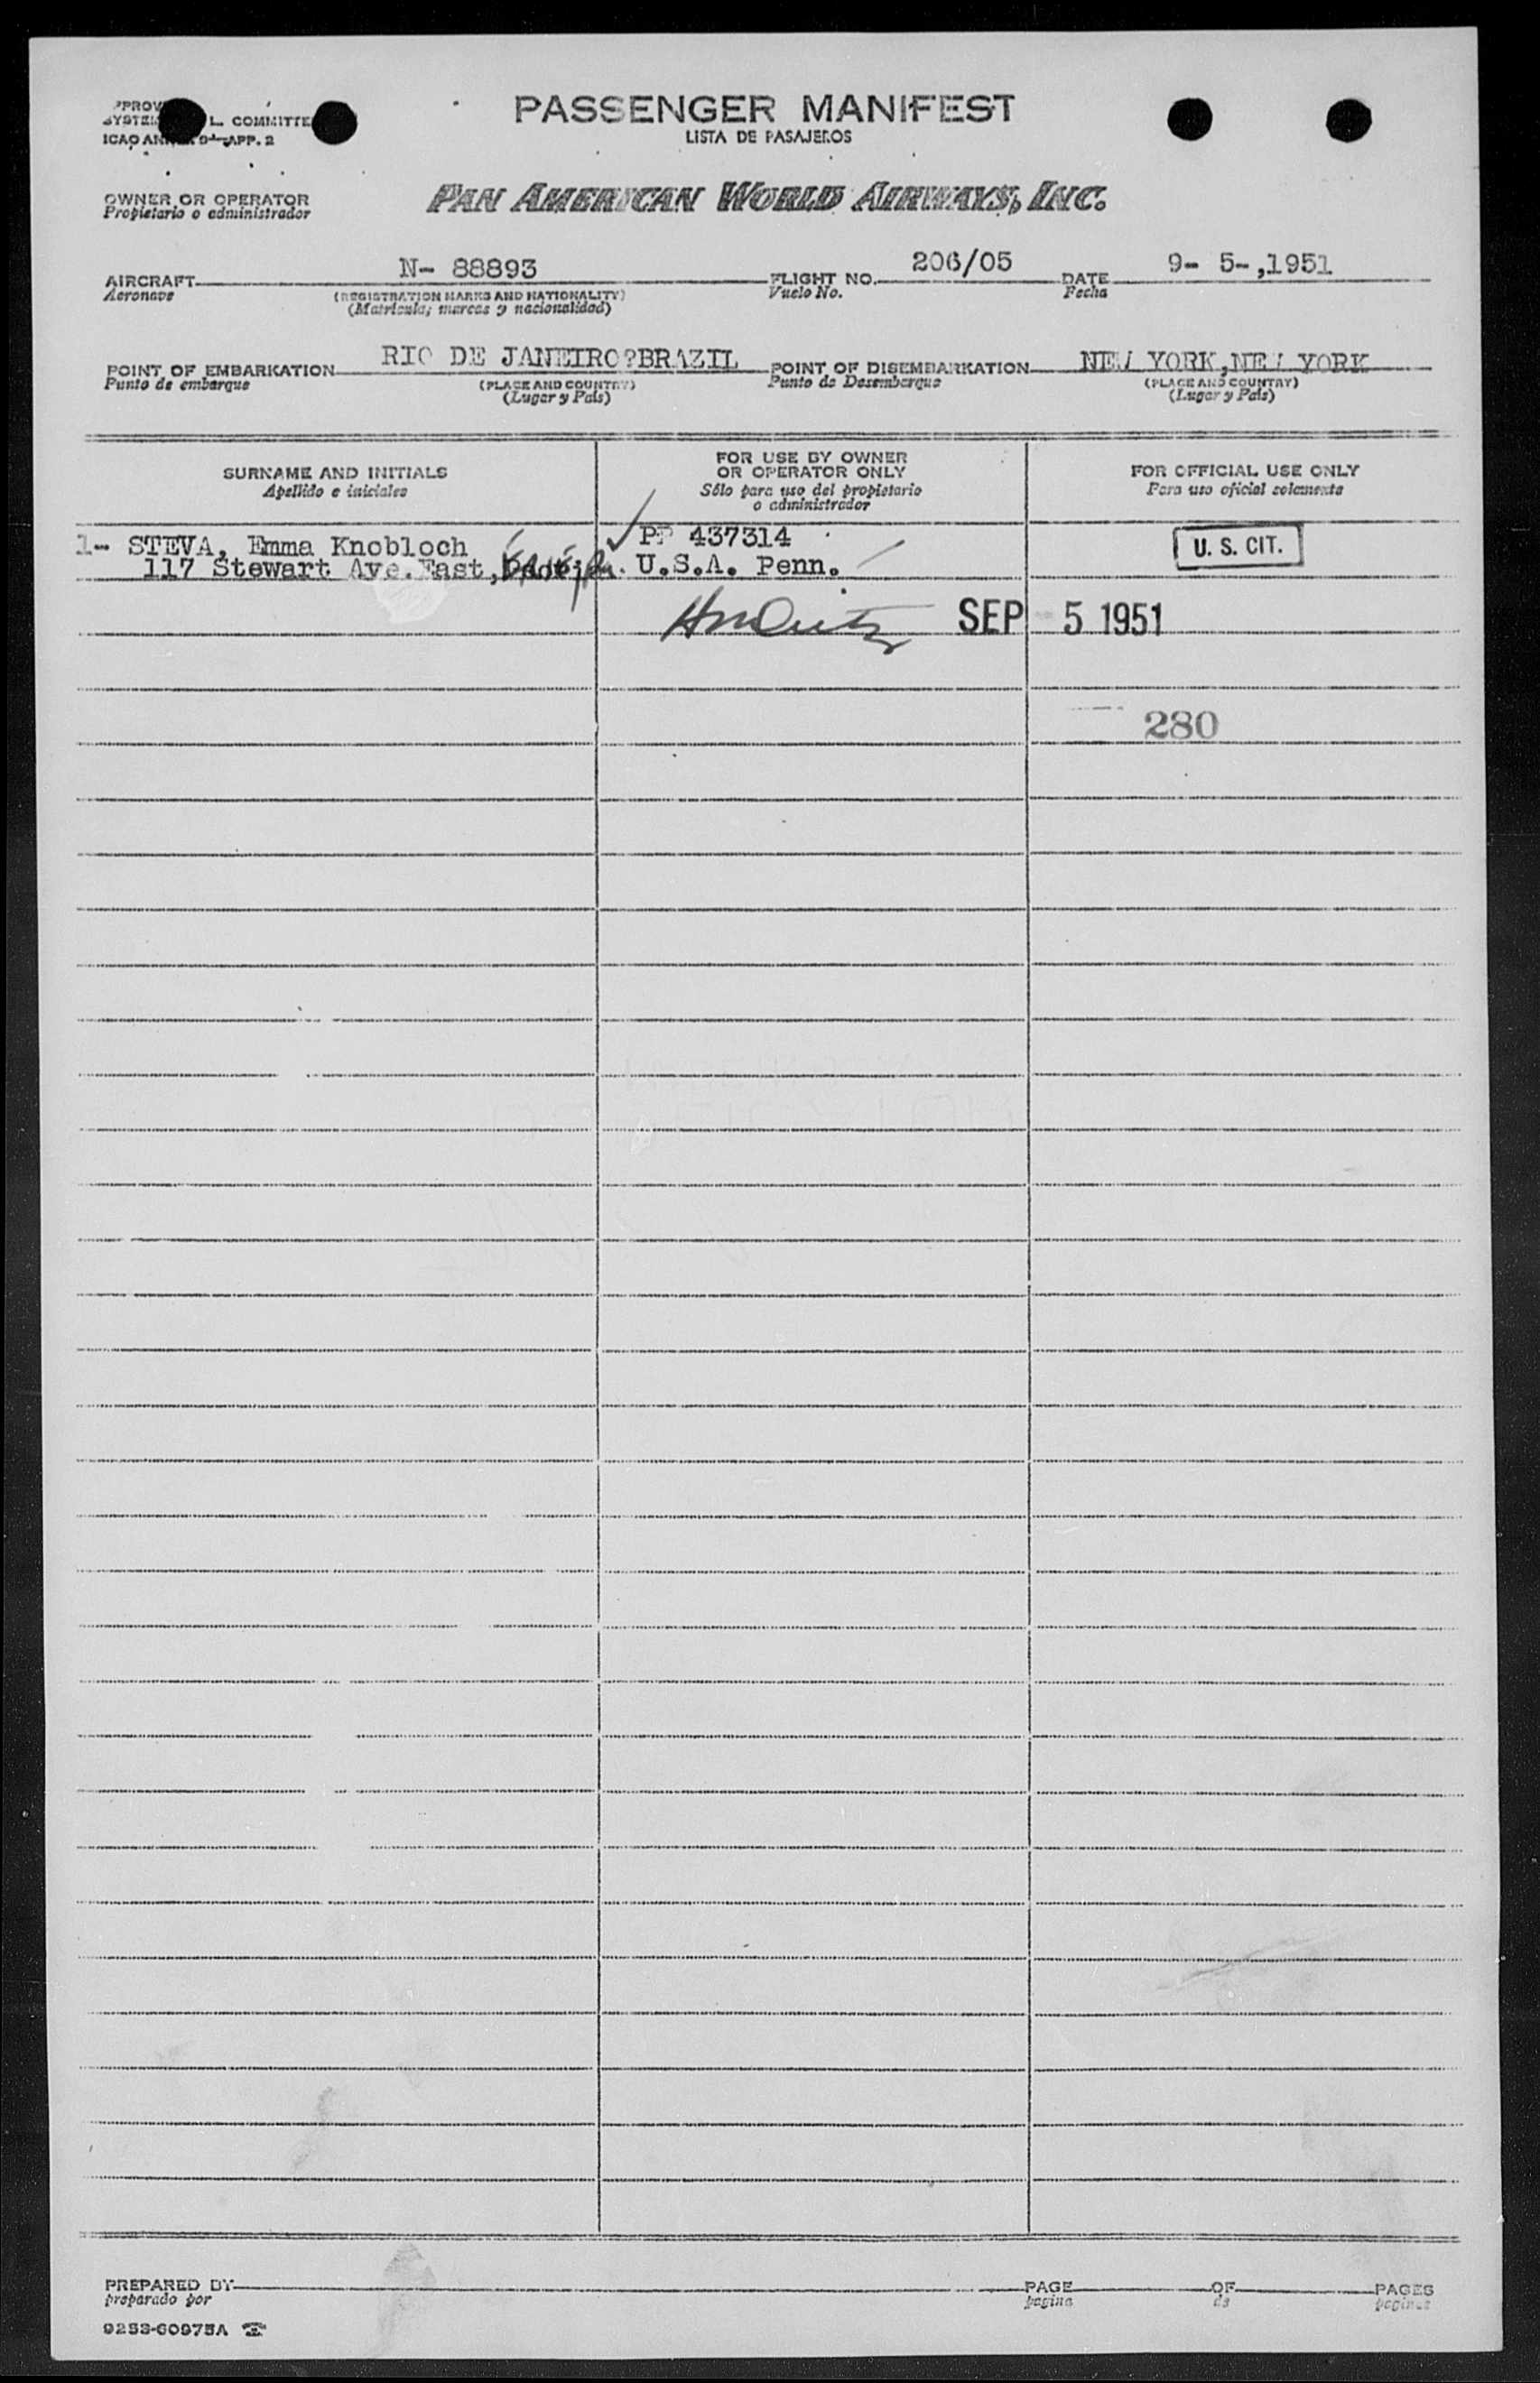 PASSENGER MANIFEST
LISTA DE PASAJEROS
L. COMMITTE
APP. 2
OWNER OR OPERATOR
Propietario o administrador
PAN AMERICAN WORLD AIRWAYS, INC.
AIRCRAFT N- 88893 FLIGHT NO. 206/05 DATE 9- 5-,1951
Aeronave (REGISTRATION MARKS AND NATIONALITY) Vuelo No. Fecha
(Matricula; marcas y nacionalidad)
POINT OF EMBARKATION RIO DE JANEIRO?BRAZIL POINT OF DISEMBARKATION NEW YORK,NEW YORK
Punto de embarque (PLACE AND COUNTRY) Punto de Desembarque (PLACE AND COUNTRY)
(Lugar y País) (Lugar y País)
SURNAME AND INITIALS
Apellido e iniciales
FOR USE BY OWNER
OR OPERATOR ONLY
Sólo para uso del propietario
o administrador
FOR OFFICIAL USE ONLY
Para uso oficial solamente
1- STEVA, Emma Knobloch PP 437314 U. S. CIT.
117 Stewart Ave. East, U.S.A. Penn.
SEP 5 1951
280
PREPARED BY PAGE OF PAGES
preparado por pagina de paginas
9253-60975A